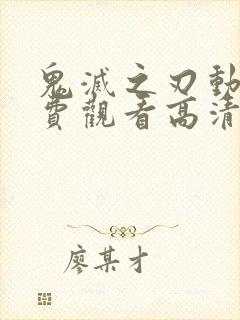 鬼滅之刃動
費觀看高清
廖某才